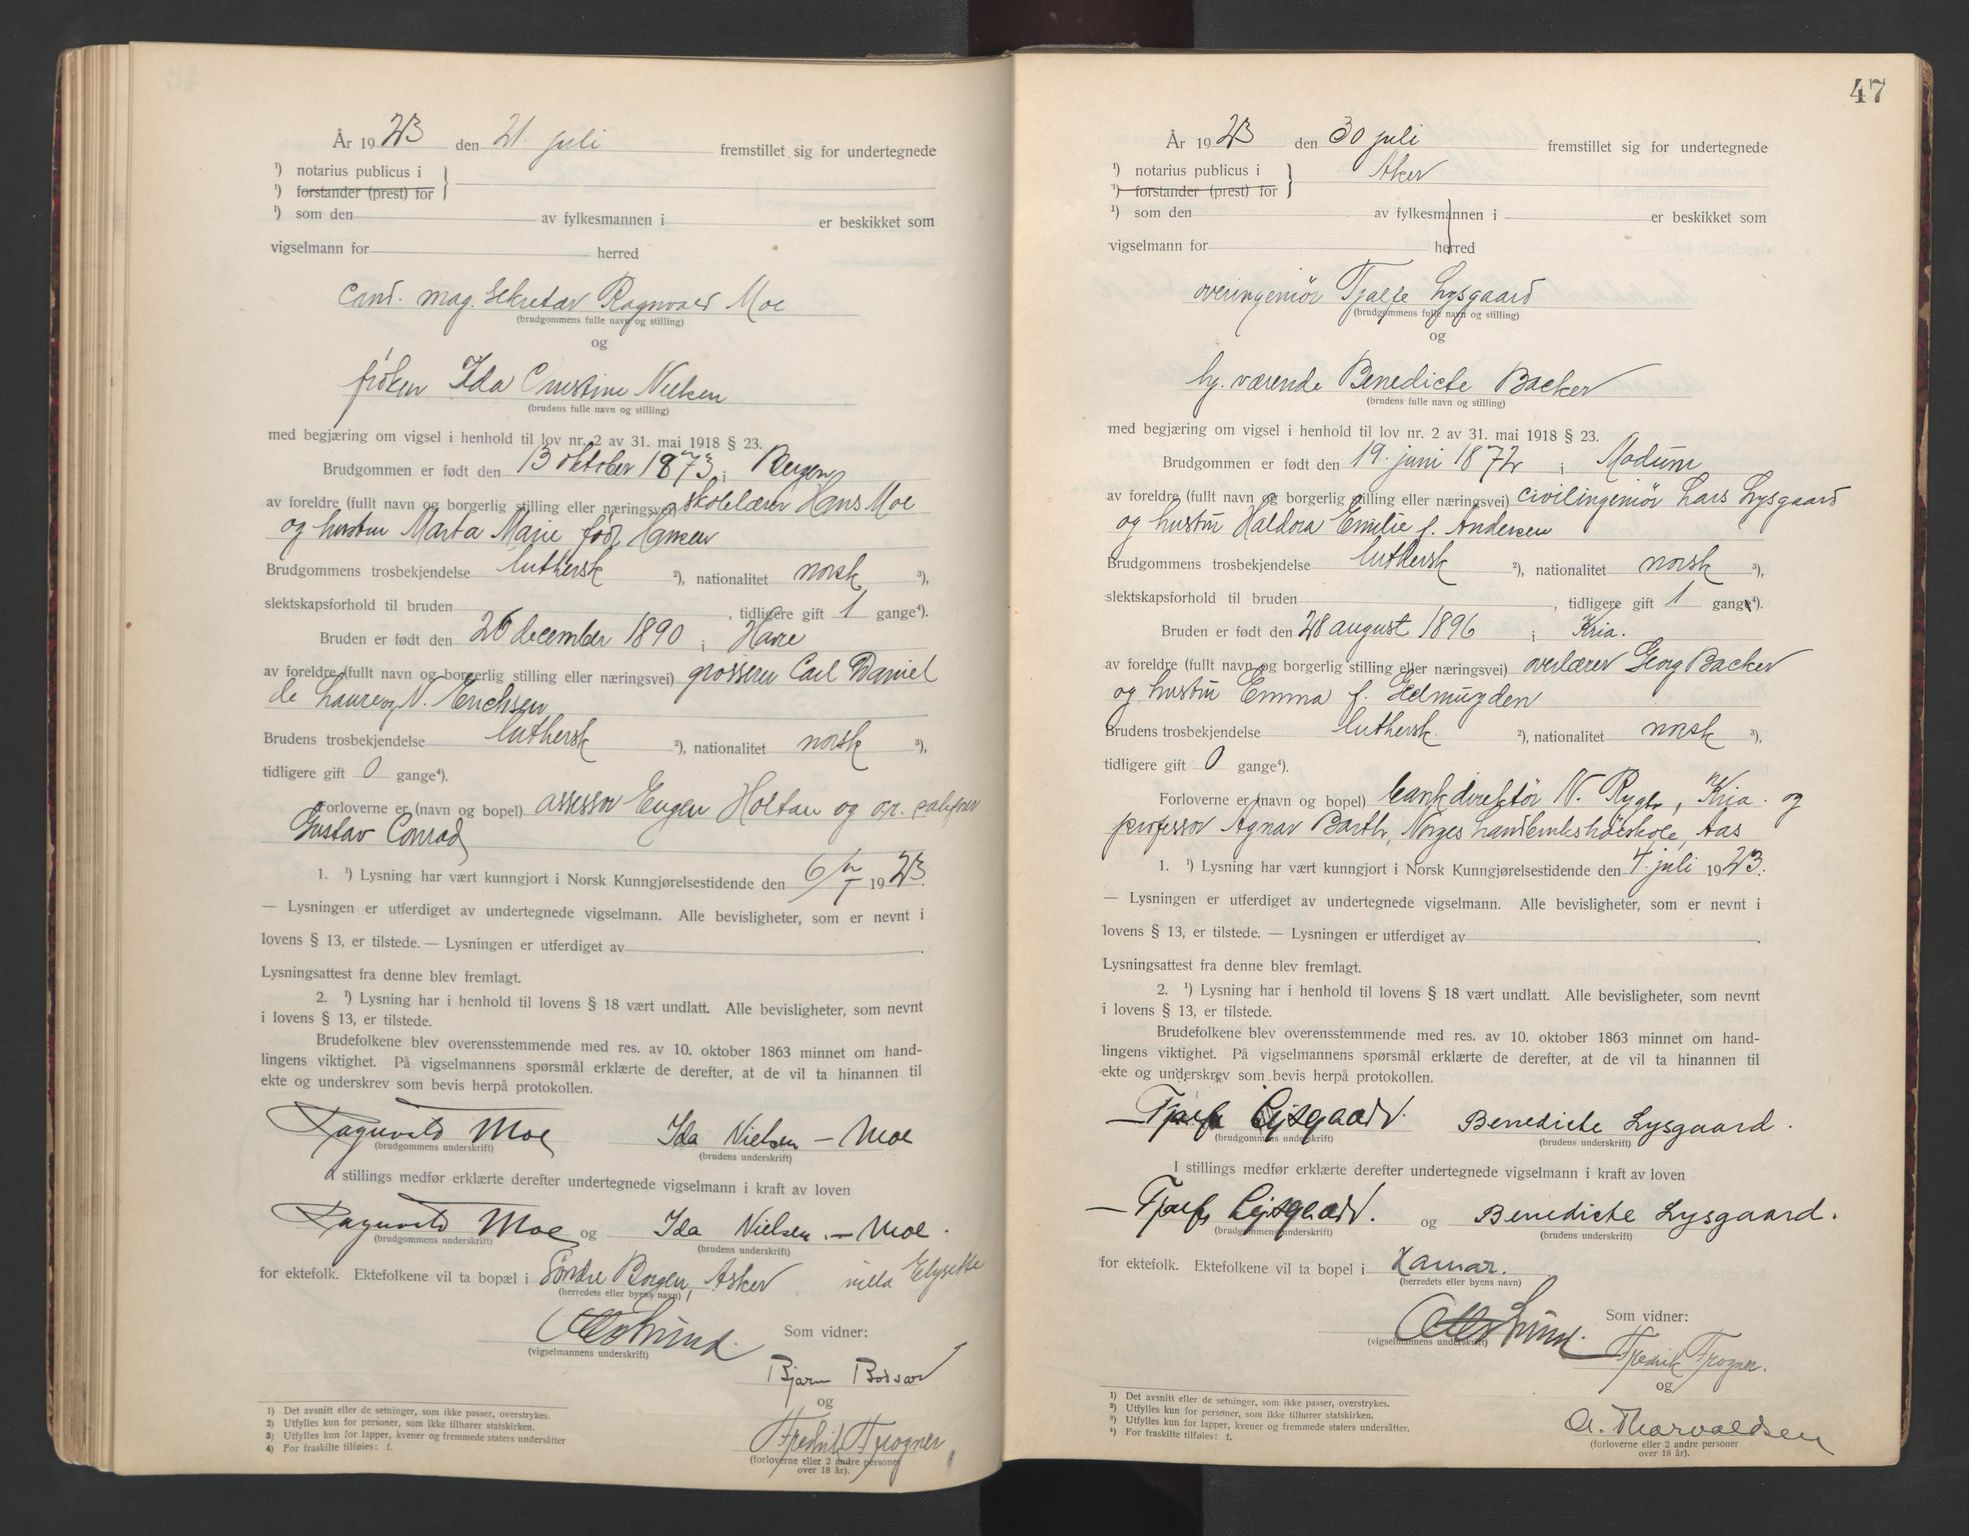 År 1923 den 21. juli fremstillet sig for undertegnede
¹) notarius publicus i
¹) forstander (prest) for
¹) som den av fylkesmannen i er beskikket som
vigselmann for herred
cand. mag. sekretær Ragnvald Moe
(brudgommens fulle navn og stilling)
og
frøken Ida Cristine Nielsen
(brudens fulle navn og stilling)
med begjæring om vigsel i henhold til lov nr. 2 av 31. mai 1918 § 23.
Brudgommen er født den 13 oktober 1873 i Bergen
av foreldre (fullt navn og borgerlig stilling eller næringsvei) skolelærer Hans Moe
og hustru Marta Marie født Hansen
Brudgommens trosbekjendelse luthersk ²), nationalitet norsk ³),
slektskapsforhold til bruden , tidligere gift 1 gange⁴).
Bruden er født den 26 december 1890 i
av foreldre (fullt navn og borgerlig stilling eller næringsvei) grosserer Carl Daniel
de N. Erichsen
Brudens trosbekjendelse luthersk ²), nationalitet norsk ³),
tidligere gift 0 gange⁴).
Forloverne er (navn og bopel) assessor Eugen Holtan og
Gustav Conrad
1. ¹) Lysning har vært kunngjort i Norsk Kunngjørelsestidende den 6/ 1923.
— Lysningen er utferdiget av undertegnede vigselmann. Alle bevisligheter, som er nevnt i
lovens § 13, er tilstede. — Lysningen er utferdiget av
Lysningsattest fra denne blev fremlagt.
2. ¹) Lysning har i henhold til lovens § 18 vært undlatt. Alle bevisligheter, som nevnt
i lovens § 13, er tilstede.
Brudefolkene blev overensstemmende med res. av 10. oktober 1863 minnet om hand-
lingens viktighet. På vigselmannens spørsmål erklærte de derefter, at de vil ta hinannen til
ekte og underskrev som bevis herpå protokollen.
Ragnvald Moe Ida Nielsen – Moe
(brudgommens underskrift) (brudens underskrift)
I stillings medfør erklærte derefter undertegnede vigselmann i kraft av loven
Ragnvald Moe og Ida Nielsen. – Moe.
(brudgommens underskrift) (brudens underskrift)
for ektefolk. Ektefolkene vil ta bopæl i Søndre Borgen, Asker villa Elysette
(herredets eller byens navn)
Otto Lund.
(vigselmannens underskrift)
Som vidner:
Bjarne
og
Fredrik Frogner
(forloverne eller 2 andre personer
over 18 år).
1) Det avsnitt eller de setninger, som ikke passer, overstrykes.
2) Utfylles kun for personer, som ikke tilhører statskirken.
3) Utfylles kun for lapper, kvener og fremmede staters undersåtter
4) For fraskilte tilføies: f.
47
År 1923 den 30 juli fremstillet sig for undertegnede
¹) notarius publicus i Aker
¹) forstander (prest) for
¹) som den av fylkesmannen i er beskikket som
vigselmann for herred
overingeniør Tjalfe Lysgaard
(brudgommens fulle navn og stilling)
og
hj. værende Benedicte Backer
(brudens fulle navn og stilling)
med begjæring om vigsel i henhold til lov nr. 2 av 31. mai 1918 § 23.
Brudgommen er født den 19. juni 1872 i Modum
av foreldre (fullt navn og borgerlig stilling eller næringsvei) civilingeniør Lars Lysgaard
og hustru Haldora Emilie f. Andersen
Brudgommens trosbekjendelse luthersk ²), nationalitet norsk ³),
slektskapsforhold til bruden , tidligere gift 1 gang⁴).
Bruden er født den 28 august 1896 i Kria.
av foreldre (fullt navn og borgerlig stilling eller næringsvei) overlærer Georg Backer
og hustru Emma f.
Brudens trosbekjendelse luthersk ²), nationalitet norsk ³),
tidligere gift 0 gange⁴).
Forloverne er (navn og bopel) bankdirektør N. Rygh, Kria. og
professor Agnar Barth, Norges Landbrukshøiskole, Aas
1. ¹) Lysning har vært kunngjort i Norsk Kunngjørelsestidende den 4. juli 1923.
— Lysningen er utferdiget av undertegnede vigselmann. Alle bevisligheter, som er nevnt i
lovens § 13, er tilstede. — Lysningen er utferdiget av
Lysningsattest fra denne blev fremlagt.
2. ¹) Lysning har i henhold til lovens § 18 vært undlatt. Alle bevisligheter, som nevnt
i lovens § 13, er tilstede.
Brudefolkene blev overensstemmende med res. av 10. oktober 1863 minnet om hand-
lingens viktighet. På vigselmannens spørsmål erklærte de derefter, at de vil ta hinannen til
ekte og underskrev som bevis herpå protokollen.
Tjalfe Lysgaard. Benedicte Lysgaard.
(brudgommens underskrift) (brudens underskrift)
I stillings medfør erklærte derefter undertegnede vigselmann i kraft av loven
Tjalfe Lysgaard. og Benedicte Lysgaard.
(brudgommens underskrift) (brudens underskrift)
for ektefolk. Ektefolkene vil ta bopel i Hamar.
(herredets eller byens navn)
Otto Lund.
(vigselmannens underskrift)
Som vidner:
Fredrik Frogner.
og
A. Thorvaldsen
(forloverne eller 2 andre personer
over 18 år).
1) Det avsnitt eller de setninger, som ikke passer, overstrykes.
2) Utfylles kun for personer, som ikke tilhører statskirken.
3) Utfylles kun for lapper, kvener og fremmede staters undersåtter.
4) For fraskilte tilføies: f.